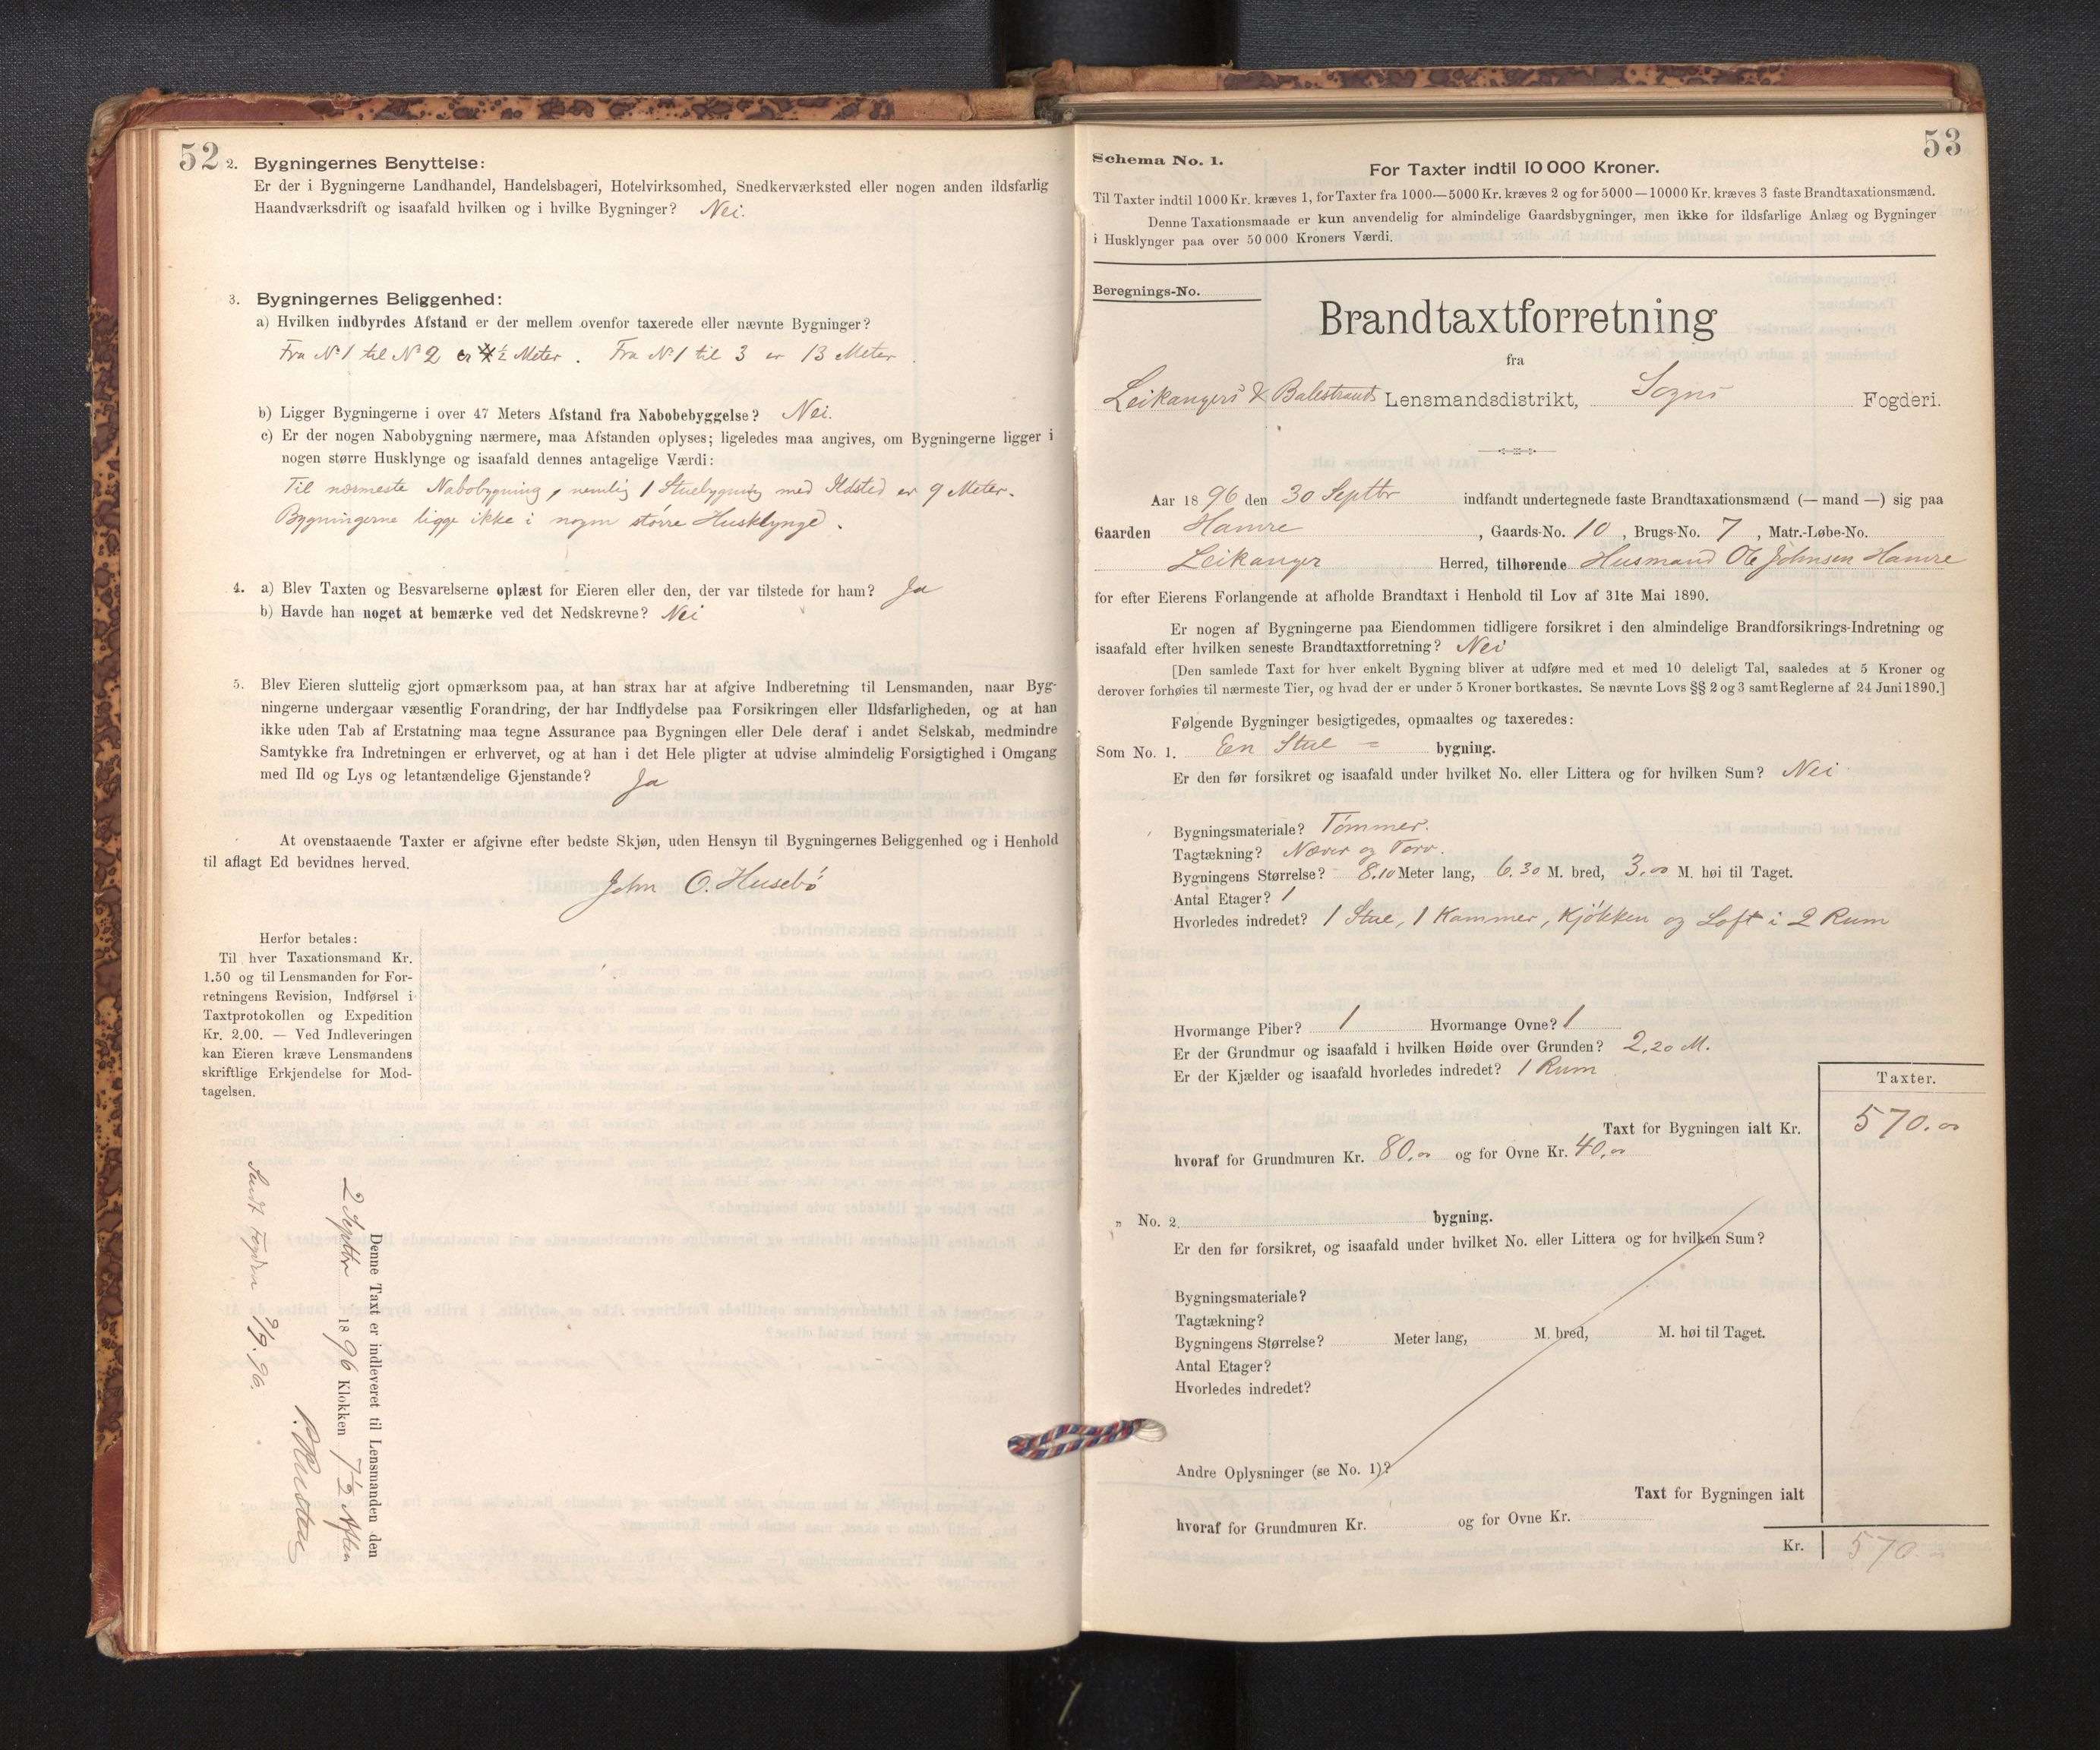 52
2. Bygningernes Benyttelse:
Er der i Bygningerne Landhandel, Handelsbageri, Hotelvirksomhed, Snedkerværksted eller nogen anden ildsfarlig
Haandværksdrift og isaafald hvilken og i hvilke Bygninger? Nei.
3. Bygningernes Beliggenhed:
a) Hvilken indbyrdes Afstand er der mellem ovenfor taxerede eller nævnte Bygninger?
Fra No 1 til No 2 er ½ Meter. Fra No 1 til 3 er 13 Meter
b) Ligger Bygningerne i over 47 Meters Afstand fra Nabobebyggelse? Nei.
c) Er der nogen Nabobygning nærmere, maa Afstanden oplyses; ligeledes maa angives, om Bygningerne ligger i
nogen større Husklynge og isaafald dennes antagelige Værdi:
Til nærmeste Nabobygning, nemlig 1 Stuebygning med Ildsted er 9 Meter.
Bygningerne ligge ikke i nogen større Husklynge.
4. a) Blev Taxten og Besvarelserne oplæst for Eieren eller den, der var tilstede for ham? Ja
b) Havde han noget at bemærke ved det Nedskrevne? Nei
5. Blev Eieren sluttelig gjort opmærksom paa, at han strax har at afgive Indberetning til Lensmanden, naar Byg-
ningerne undergaar væsentlig Forandring, der har Indflydelse paa Forsikringen eller Ildsfarligheden, og at han
ikke uden Tab af Erstatning maa tegne Assurance paa Bygningen eller Dele deraf i andet Selskab, medmindre
Samtykke fra Indretningen er erhvervet, og at han i det Hele pligter at udvise almindelig Forsigtighed i Omgang
med Ild og Lys og letantændelige Gjenstande? Ja
At ovenstaaende Taxter er afgivne efter bedste Skjøn, uden Hensyn til Bygningernes Beliggenhed og i Henhold
til aflagt Ed bevidnes herved.
John O. Husebö
Herfor betales:
Til hver Taxationsmand Kr.
1.50 og til Lensmanden for For-
retningens Revision, Indførsel i
Taxtprotokollen og Expedition
Kr. 2.00. — Ved Indleveringen
kan Eieren kræve Lensmandens
skriftlige Erkjendelse for Mod-
tagelsen.
Denne Taxt er indleveret til Lensmanden den
2 Septbr 1896 Klokken 7½ Aften
Sendt Fogden 9/9. 96.
53
Schema No. 1.
For Taxter indtil 10 000 Kroner.
Til Taxter indtil 1000 Kr. kræves 1, for Taxter fra 1000—5000 Kr. kræves 2 og for 5000—10000 Kr. kræves 3 faste Brandtaxationsmænd.
Denne Taxationsmaade er kun anvendelig for almindelige Gaardsbygninger, men ikke for ildsfarlige Anlæg og Bygninger
i Husklynger paa over 50 000 Kroners Værdi.
Beregnings-No.
Brandtaxtforretning
fra
Leikangers & Balestrands Lensmandsdistrikt, Sogns Fogderi.
Aar 1896 den 30 Septbr indfandt undertegnede faste Brandtaxationsmænd (— mand —) sig paa
Gaarden Hamre, Gaards-No. 10, Brugs-No. 7, Matr.-Løbe-No.
Leikanger Herred, tilhørende Husmand Ole Johnsen Hamre
for efter Eierens Forlangende at afholde Brandtaxt i Henhold til Lov af 31te Mai 1890.
Er nogen af Bygningerne paa Eiendommen tidligere forsikret i den almindelige Brandforsikrings-Indretning og
isaafald efter hvilken seneste Brandtaxtforretning? Nei
[Den samlede Taxt for hver enkelt Bygning bliver at udføre med et med 10 deleligt Tal, saaledes at 5 Kroner og
derover forhøies til nærmeste Tier, og hvad der er under 5 Kroner bortkastes. Se nævnte Lovs §§ 2 og 3 samt Reglerne af 24 Juni 1890.]
Følgende Bygninger besigtigedes, opmaaltes og taxeredes:
Som No. 1. En Stue = bygning.
Er den før forsikret og isaafald under hvilket No. eller Littera og for hvilken Sum? Nei
Bygningsmateriale? Tömmer.
Tagtækning? Næver og Torv.
Bygningens Størrelse? 8.10 Meter lang, 6.30 M. bred, 3,00 M. høi til Taget.
Antal Etager? 1
Hvorledes indredet? 1 Stue, 1 Kammer, Kjökken og Loft i 2 Rum
Hvormange Piber? 1 Hvormange Ovne? 1
Er der Grundmur og isaafald i hvilken Høide over Grunden? 2,20 M.
Er der Kjælder og isaafald hvorledes indredet? 1 Rum
Taxter.
Taxt for Bygningen ialt Kr. 570.00
hvoraf for Grundmuren Kr. 80,00 og for Ovne Kr. 40,00
„ No. 2. bygning.
Er den før forsikret, og isaafald under hvilket No. eller Littera og for hvilken Sum?
Bygningsmateriale?
Tagtækning?
Bygningens Størrelse? Meter lang, M. bred, M. høi til Taget.
Antal Etager?
Hvorledes indredet?
Andre Oplysninger (se No. 1)?
Taxt for Bygningen ialt
hvoraf for Grundmuren Kr. og for Ovne Kr.
Kr. 570.00